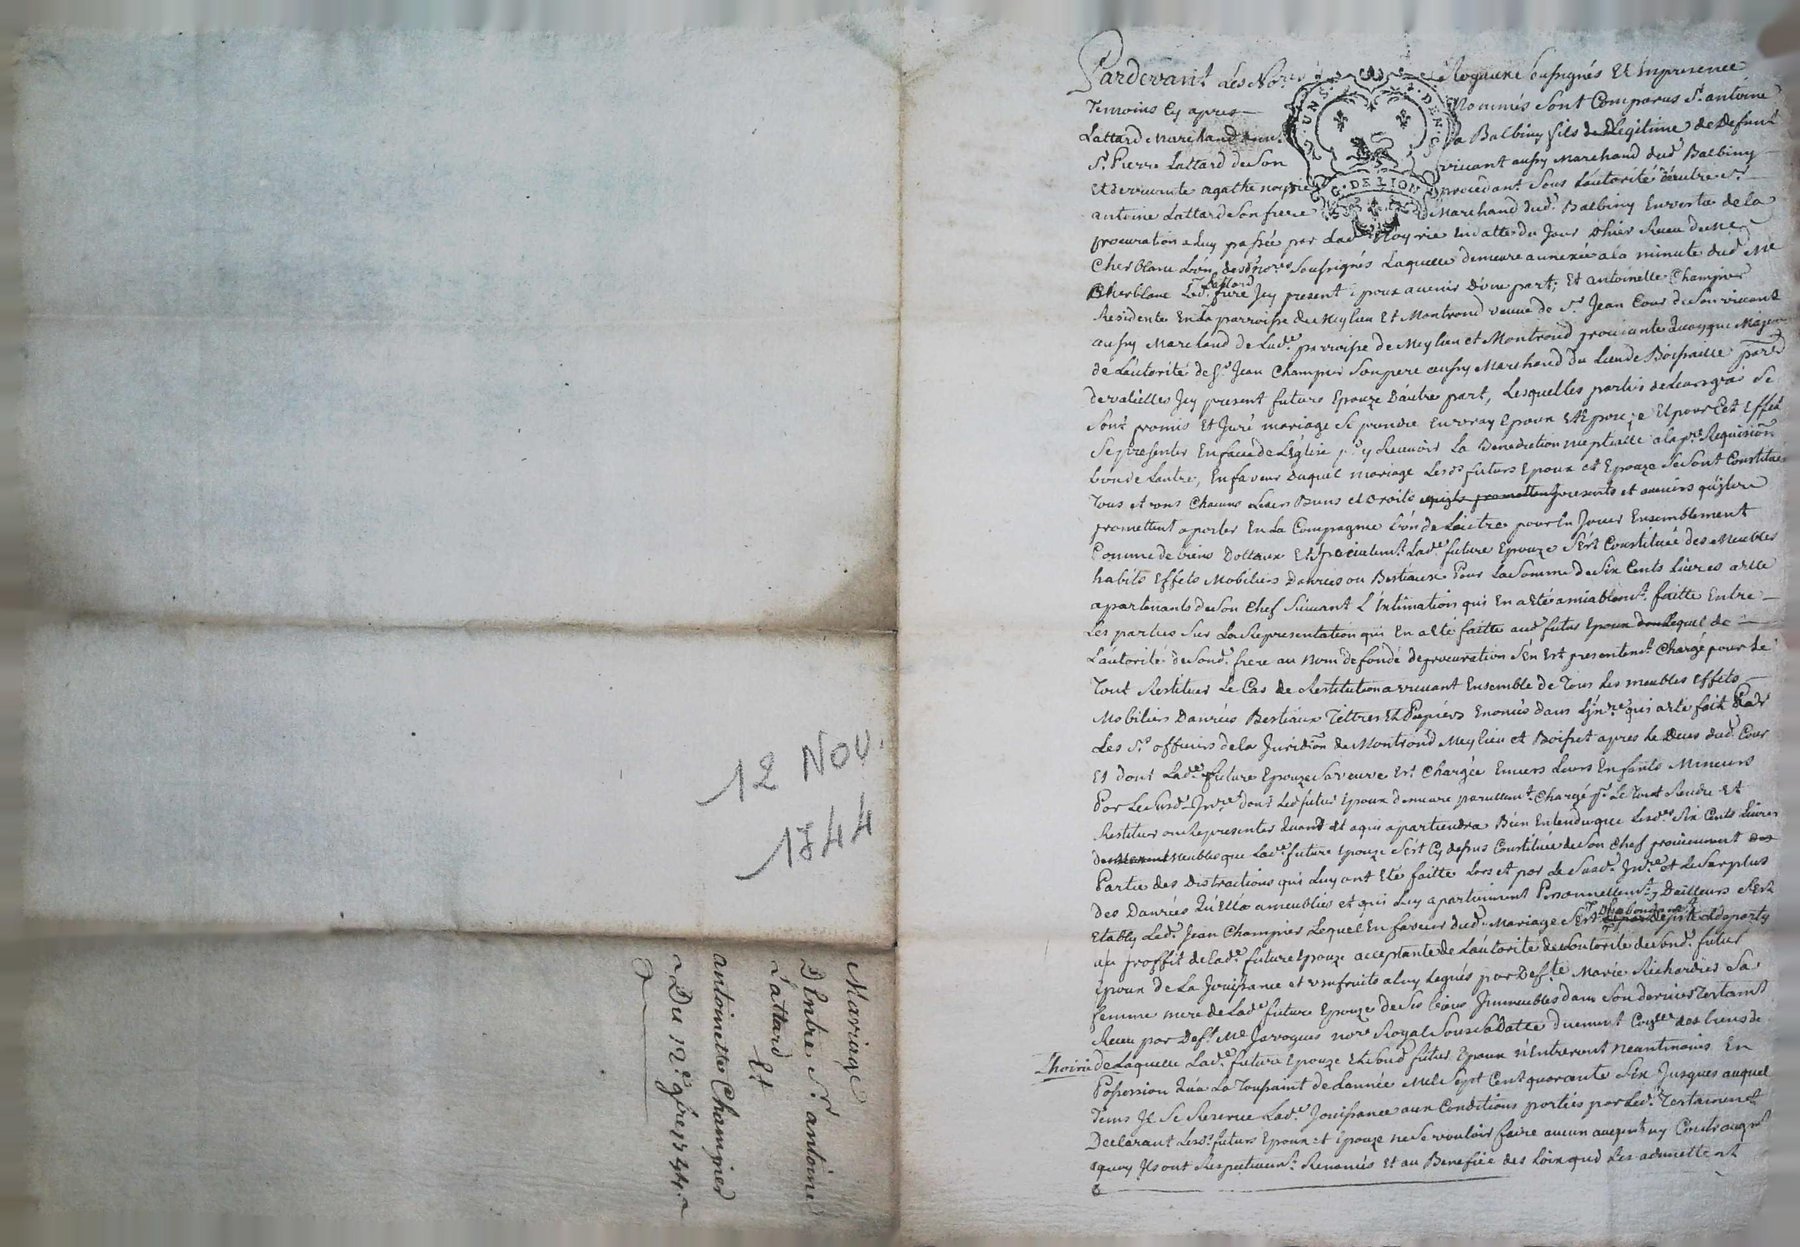 12 NOV.
1744
Mariage
D'Entre Sr. antoine
Lattard
Et
antoinette Champier
Du 12e. 9bre 1744.
G. DE LION
Pardevant Les Nores Royaux Soussignés Et Enpresence
Temoins Cy apres Nommés Sont Comparus Sr. antoine
Lattard Marchand Balbiny fils Legitime de Defunt
Sr. Pierre Lattard de Son vivant aussy Marchand dud. Balbiny
Et de vivante agathe noyrie procedant Sous L'autorité d'autre Sr.
antoine Lattard Son frere Marchand dud. Balbiny En vertu de la
procuration a luy passée par Lade. Noyrie En datte du Jour d'hier Receu du Me
Cherblanc L'un desd. nores Soussignés Laquelle demeure annexée a la minute dud. Me
Cherblanc Led. Sr. Lattard frere Icy present époux avenir D'une part; Et antoinette Champier
Residente En la parroisse de Meylieu Et Montrond veuve de Sr. Jean Cour de Son vivant
aussy Marchand de Lade. parroisse de Meylieu et Montrond procedante quoyque Majeure
de L'autorité de Sr. Jean Champier Son pere aussy Marchand du Lieu de Boissaille
de valeilles Icy present future Epouze D'autre part, Lesquelles parties de Leurs gré Se
Sont promis Et Juré mariage Se prendre En vray Epoux Et Epouze Et pour Cet Effet
Se presenter En face de L'Eglise pr. y Recevoir La Benediction nuptialle a la pre. Requisition
L'un de L'autre, En faveur duquel mariage Lesds. futurs Epoux et Epouze Se Sont Constitués
Tous et uns Chacuns Leurs Biens et droits presents et avenirs qu'ils se
promettent aporter En La Compagnie L'un de L'autre pour En Jouir Ensemblement
Comme de biens Dottaux Et Specialemt. Lade. future Epouze S'est Constituée des Meubles
habits Effets Mobiliers Danrées ou Bestiaux Pour La Somme de Six Cents Livres a Elle
apartenants de Son Chef Suivant L'Estimation qui En a eté amiablemt. faitte Entre
Les parties Sur La Representation qui En a eté faitte aud. futur Epoux Lequel de
L'autorité de Sond. frere au Nom de fondé de procuration S'en Est presentemt. Chargé pour Le
Tout Restituer Le Cas de Restitution arrivant Ensemble de Tous Les meubles Effets
Mobiliers Danrées Bestiaux Tittres Et Papiers Enoncés dans L'Inre. qui a eté fait Par
Les Srs. officiers de la Juridion de Montrond Meylieu et Boisset apres Le Deces dud. Cour
Et dont Lade. future Epouze Sa veuve Est Chargée Envers Leurs Enfants Mineurs
Par Le Susd. Inre. dont Led. futur Epoux demeure pareillemt. Chargé pr. Le Tout Rendre Et
Restituer ou Representer Quand Et a qui apartiendra Bien Entendu que Lesdes. Six Cents Livres
de meubles que Lade. future Epouze S'est Cy dessus Constituée de Son Chef proviennent
Partie des Distractions qui Luy ont Eté faitte Lors et par Le Susd. Inre. et Le Surplus
des Danrées Qu'Elle a ameublies et qui Luy apartiennent Personnellemt., D'ailleurs S'Est
Etably Led. Jean Champier Lequel En faveur dud. Mariage S'Est et departy
au proffit de Lade. future Epouze acceptante de L'autorité de Sond. futur
époux de La Jouissance et usufruits a luy Legués par Deffte Marie Richardier Sa
femme mere de Lade. future Epouze de Ses biens Immeubles dans Son dernier Testamt
Receu par Deft. Me Javogues nore Royal Sous Sa Datte duement Controllé des biens de
L'hoirie de Laquelle Lade. future Epouze Et Sond. futur Epoux n'Entreront Neantmoins En
Possession Qu'a La Toussaint de L'année Mil Sept Cent quarante Six Jusques auquel
Tems Il Se Reserve Lade. Jouissance aux Conditions portées par Led. Testament
Declarant Lesd. futurs Epoux et Epouze ne Se vouloir faire aucun augent ny Contraugmt
a quoy Ils ont Respectivemt. Renoncés Et au Benefice des Loix qui Les admettent